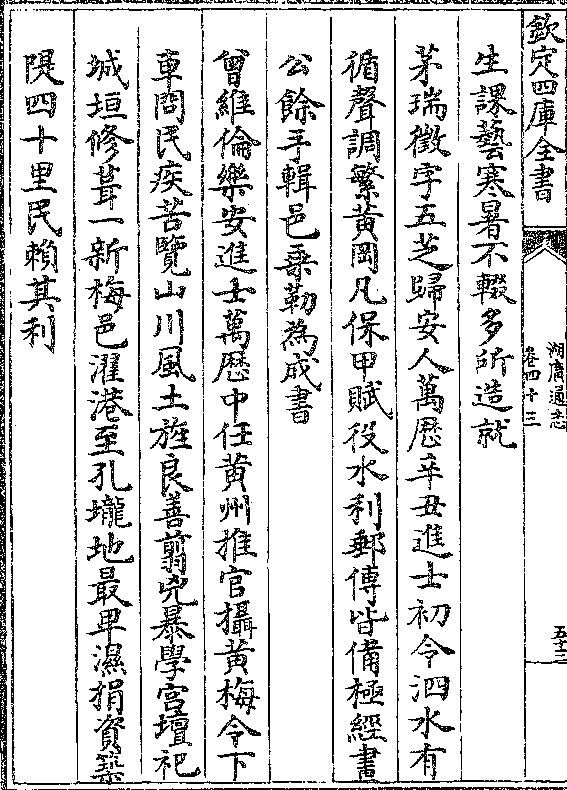 欽定四庫全書
湖廣通志
卷四十三
五十三
生課藝寒暑不輟多所造就
茅瑞徵字五芝歸安人萬厯辛丑進士初令泗水有
循聲調繁黃岡凡保甲賦役水利郵傳皆備極經畫
公餘手輯邑乗勒為成書
曾維倫樂安進士萬厯中任黃州推官攝黃梅令下
車問民疾苦覽山川風土旌良善翦兇暴學宫壇祀
城垣修葺一新梅邑濯港至孔壠地最卑濕捐資築
隄四十里民賴其利